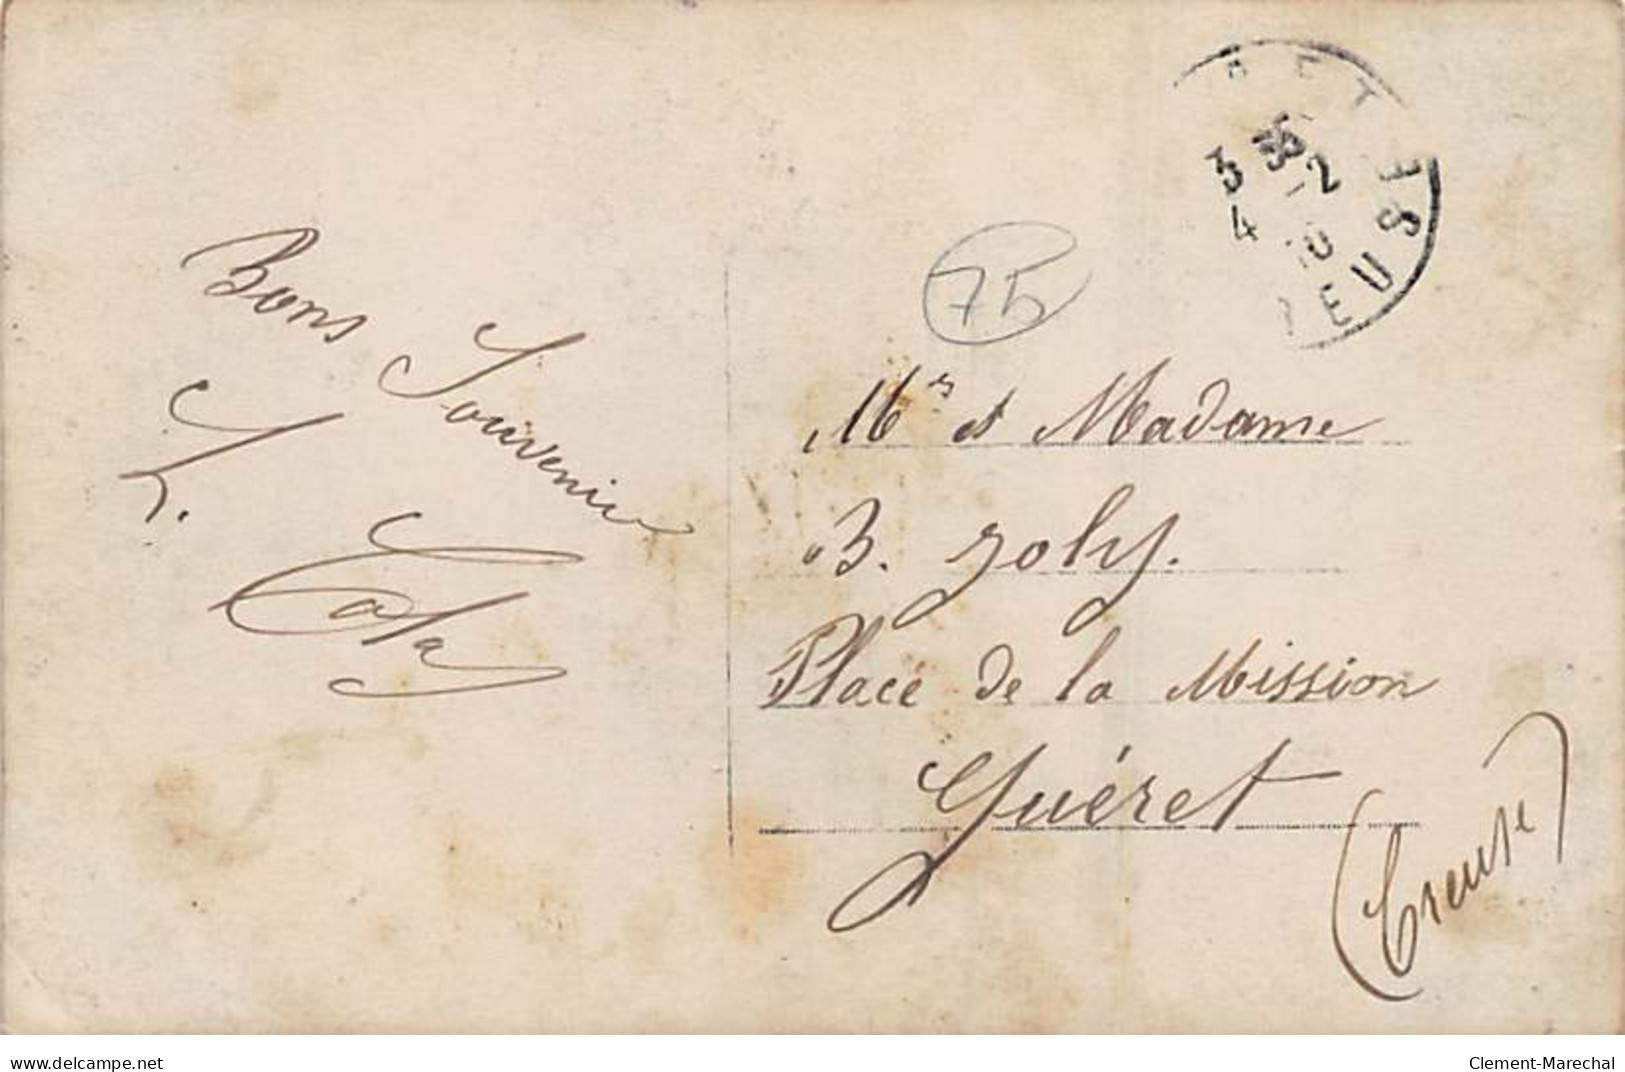 Bons
Souvenir
L. Cata
75
3 * 2
4 10
EUSE
Mr et Madame
B. Joly.
Place de la Mission
Guéret
(Creuse)
www.delcampe.net
Clement-Marechal